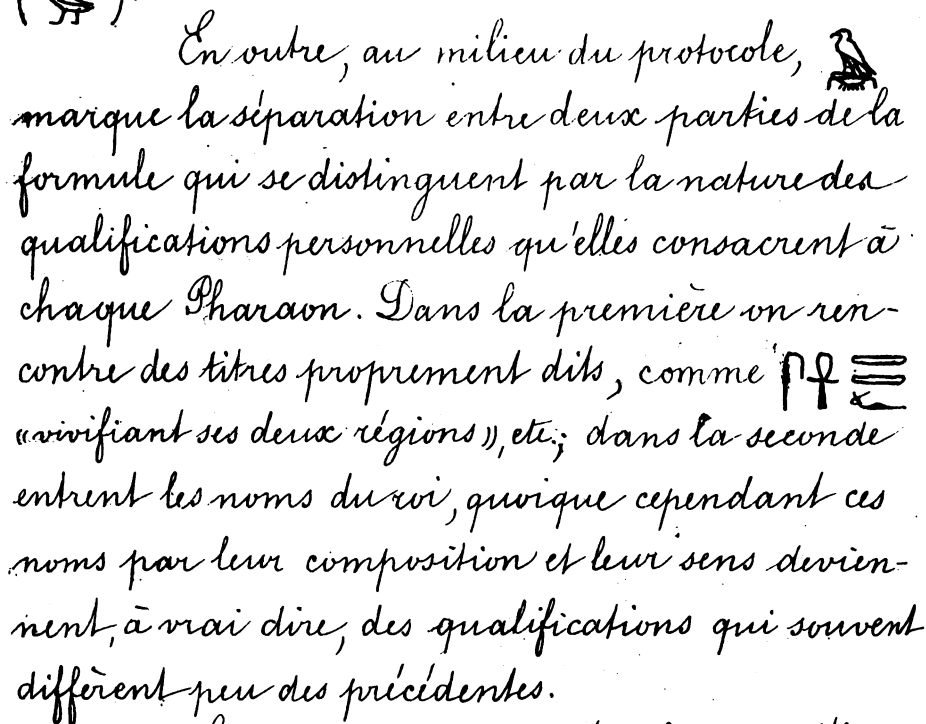 En outre, au milieu du protocole, 𓅆
marque la séparation entre deux parties de la
formule qui se distinguent par la nature des
qualifications personnelles qu'elles consacrent à
chaque Pharaon. Dans la première on ren-
contre des titres proprement dits, comme 𓋴𓋹𓇿𓇿𓆑
«vivifiant ses deux régions», etc.; dans la seconde
entrent les noms du roi, quoique cependant ces
noms par leur composition et leur sens devien-
nent, à vrai dire, des qualifications qui souvent
diffèrent peu des précédentes.